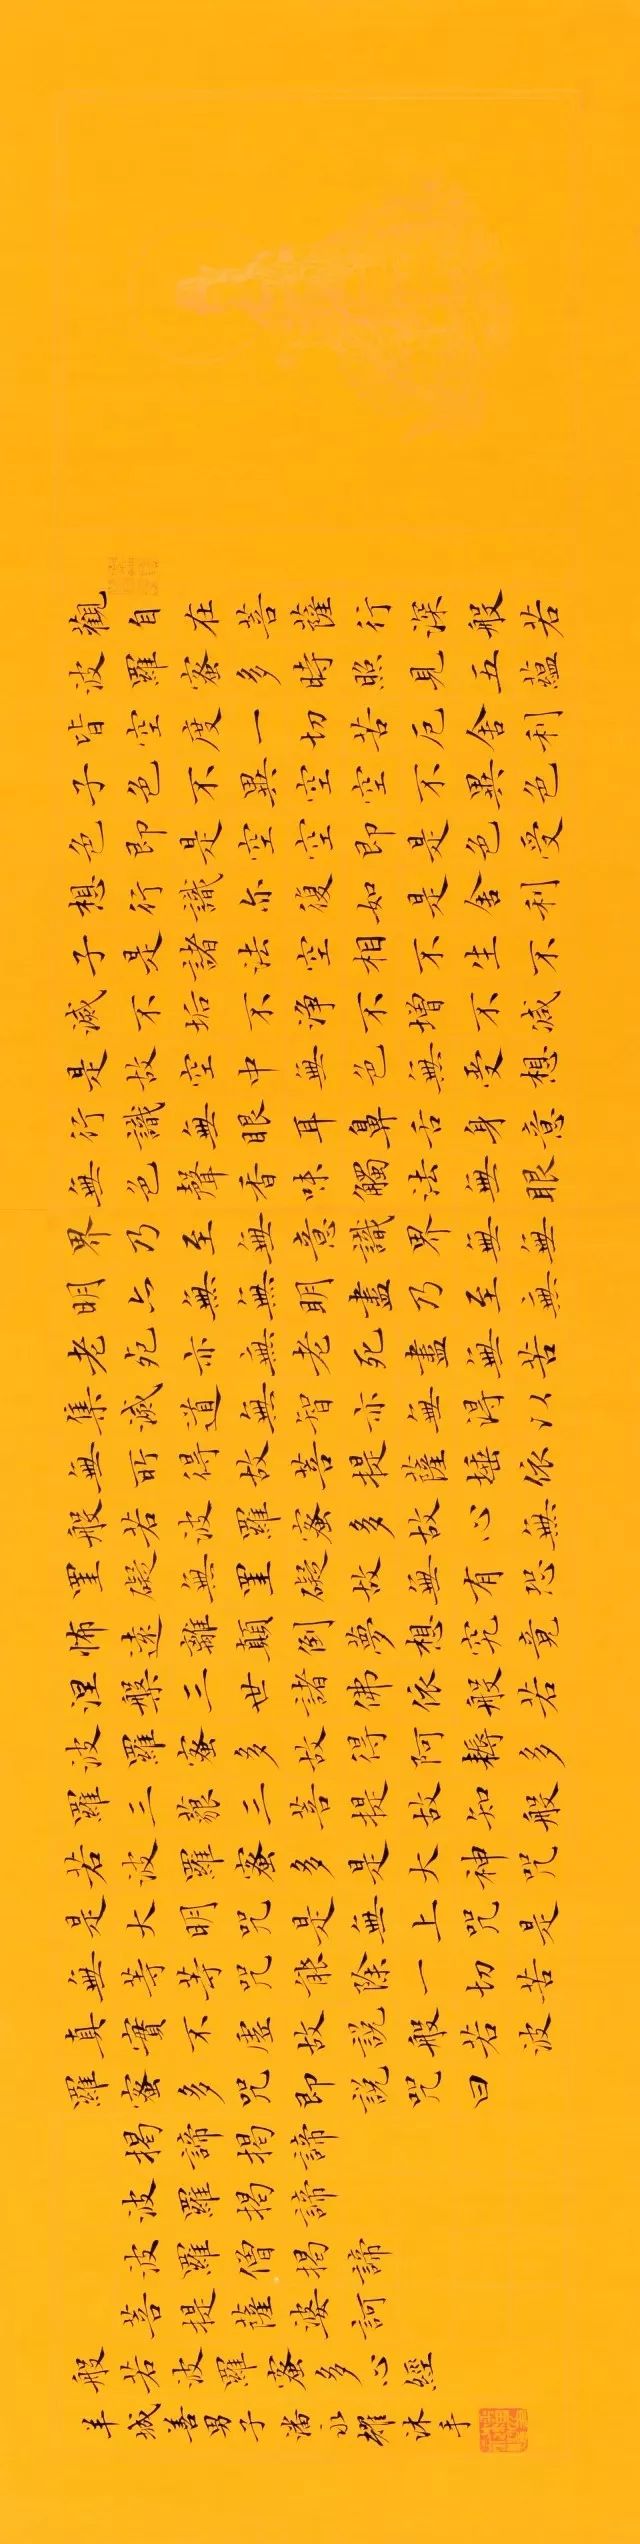 觀自在菩薩行深般若
波羅蜜多時照見五蘊
皆空度一切苦厄舍利
子色不異空空不異色
色即是空空即是色受
想行識亦復如是舍利
子是諸法空相不生不
滅不垢不淨不增不減
是故空中無色無受想
行識無眼耳鼻舌身意
無色聲香味觸法無眼
界乃至無意識界無無
明亦無無明盡乃至無
老死亦無老死盡無苦
集滅道無智亦無得以
無所得故菩提薩埵依
般若波羅蜜多故心無
罣礙無罣礙故無有恐
怖遠離顛倒夢想究竟
涅槃三世諸佛依般若
波羅蜜多故得阿耨多
羅三藐三菩提故知般
若波羅蜜多是大神咒
是大明咒是無上咒是
無等等咒能除一切苦
真實不虛故說般若波
羅蜜多咒即說咒曰
揭諦揭諦
波羅揭諦
波羅僧揭諦
菩提薩婆訶
般若波羅蜜多心經
羊城善男子潘永耀沐手